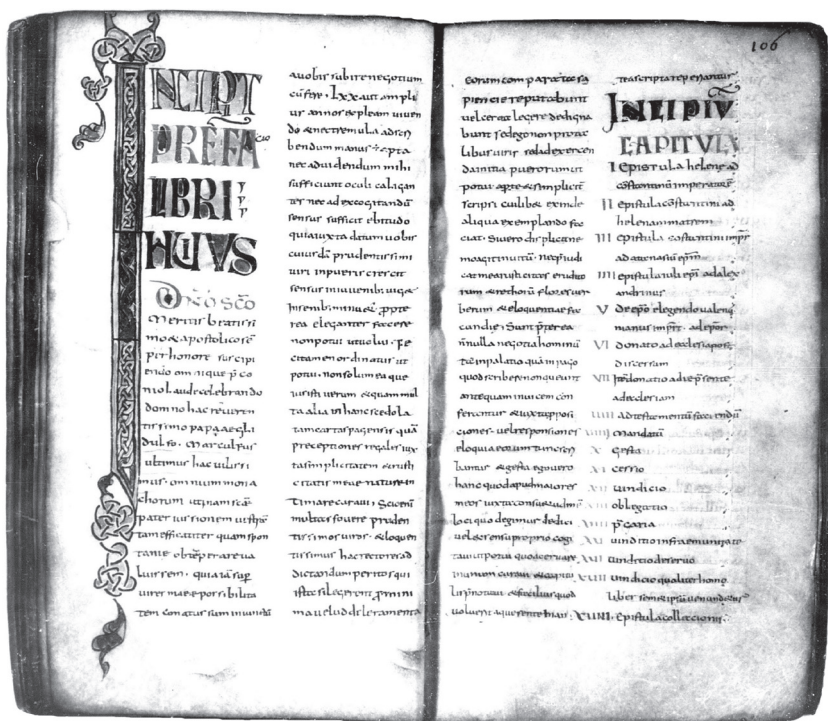 INCIPT
PREFAcio
LIBRI
HUIUS
Dno sco
meritis beatissi
mo & apostolico sē
per honore suscipi
endo omnique p co
nio laude celebrando
domno hac reveren
tissimo papa aegli
dulfo. Marculfus
ultimus hac vilissi
mus omnium mona
chorum utinam scē
pater iussionem vestrā
tam efficaciter quam spon
tanie obtēperare va
luissem. quia iā sup
vires meae possibilita
tem conatus sum iniunctū
a vobis subire negotium
cū fere. Lxx aut ampli
us annos expleam viven
do & nec tremula ad scri
bendum manus ē apta
nec ad videndum mihi
sufficiunt oculi caligan
tes nec ad excogitandū
sensus sufficit ebitudo
quia iuxta dictum vobis
cuiusdā prudentissimi
viri inpueris crescit
sensus in iuvenib; viget
in senib; minuet ppte
rea eleganter facere
non potui ut volui. fe
ci tamen ordinatus ut
potui. non solum ea que
iusistis verum & quam mul
ta alia in hanc scedola
tam cartas pagensis quā
preceptiones regalis
simplicitatem & rusti
citatis meae naturam
timare curavi. Scio enī
multos fovere pruden
tissimos viros & eloquen
tissimus hac rectores ad
dictandum peritos qui
ista si legerent p minima
velud deleramenta
106
eorum comparata sa
piencie reputabunt
vel certae legere dedigna
bunt sed ego non pro tale
libus viris sed ad exercen
da initia puerorum ut
potui apte & simplicit
scripsi cui libet exinde
aliqua exemplando fa
ciat. Si vero displicet ne
mo agit invitū. nec piudi
cat mea rusticitas erudito
rum & rethorū flores ver
berum & eloquentiae fa
cundie. Sunt pterea
nnulla negotia hominū
tā in palatio quā in pago
quod scribere non queunt
antequam invicem con
ferentur & iuxta pposi
ciones vel responsiones
eloquia eorum tunc scri
bantur & gesta ego vero
hanc quod apud maiores
meos iuxta consuetudinē
loci quo degimus dedici
vel ex sensu proprio cogi
tavi ut potui coacervare
in unum curavi & capitu
la pnotavi & facilius quod
voluerit a querente inveniā
tea scripta repenantur
INCIPIU
CAPITULA
I Epistula helene ad
cōstantinū imperatorē
II Epistula cōstantini ad
helenam matrem
III Epistula costantini impris
ad atenasiū epm
IIII epistula iuli epi ad alex
andrinus
V De epo elegendo valenti
manus imprt. ad epor
VI donatio ad ecclesia post
discessum
VII Itē donatio ad ie psente
ad ecclesiam
VIII Ad testamentū faciendū
VIIII Mandatū
X Gesta
XI cessio
XII vindicio
XIII oblegatio
XIIII pcaria
XV vinditio infra emunitate
XVI vinditio de servo
XVII vindicio qualiter homo
liber semetipsū venundetur
XVIII. Epistula collectionis.